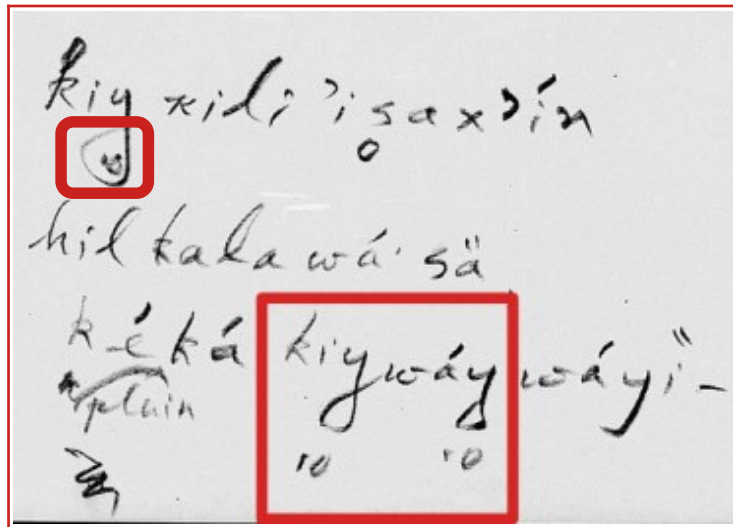 kiy xidi ʾisaxʾín
hilkalawá· sä
kéká kiywáywáyï-
plain